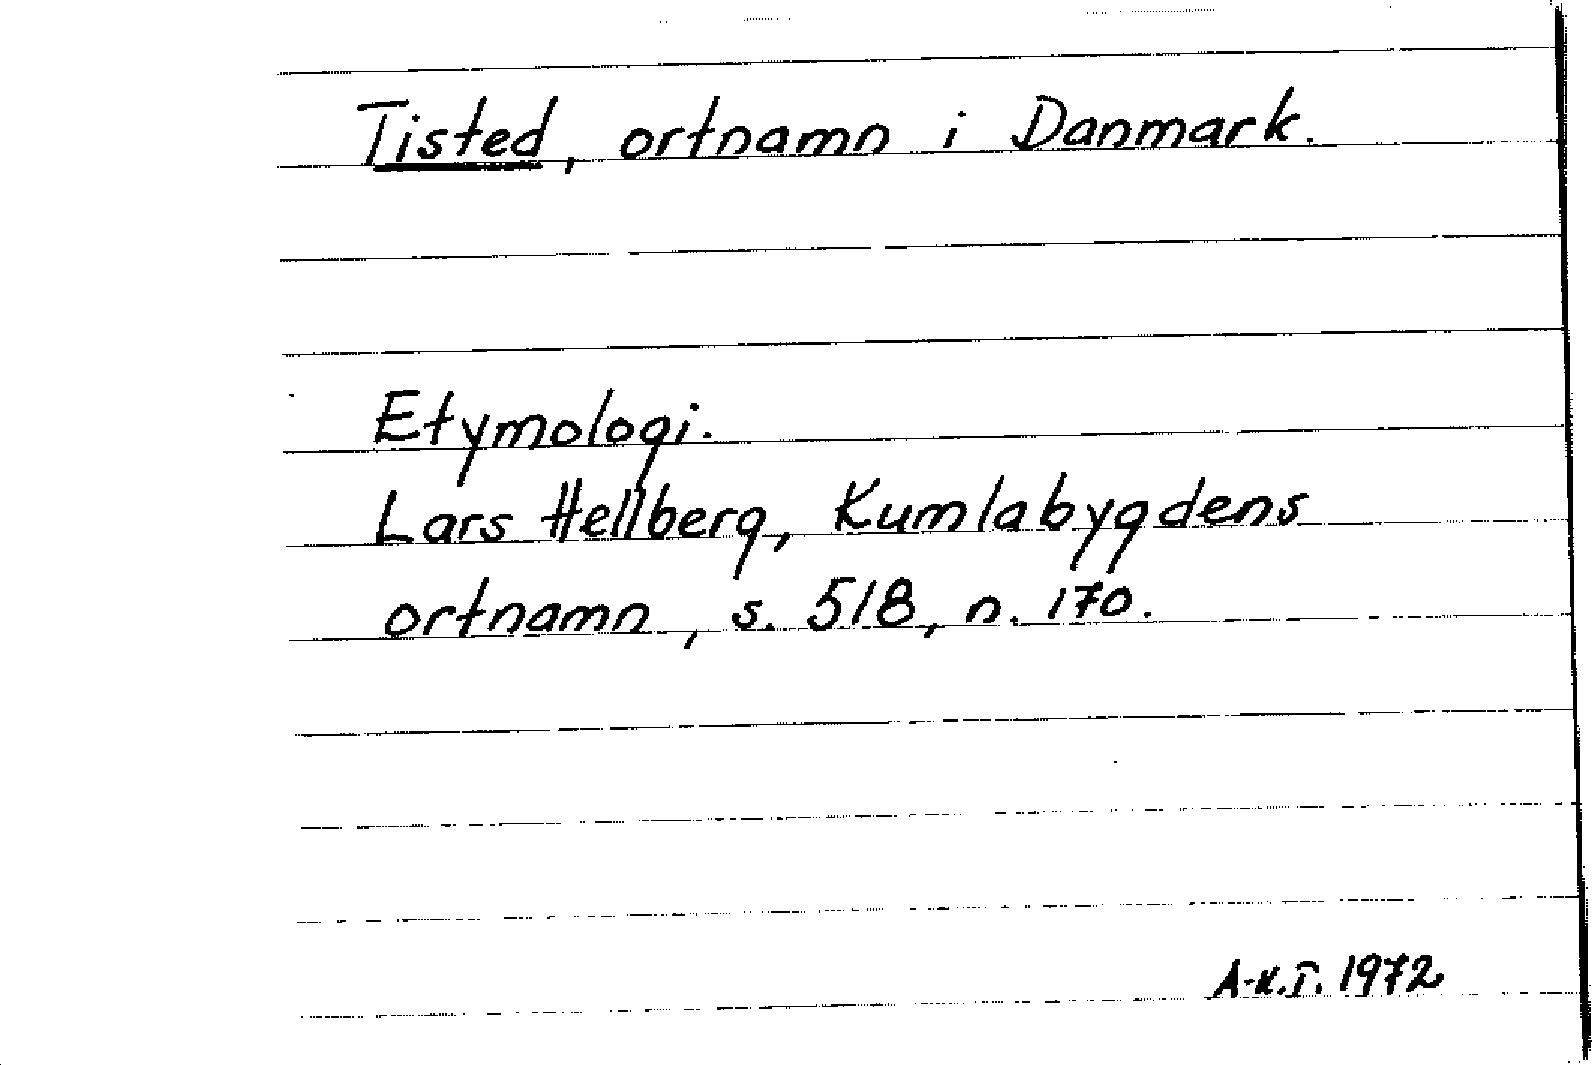 Tisted, ortnamn i Danmark.
Etymologi.
Lars Hellberg, Kumlabygdens
ortnamn, s. 518, n. 170.
A-K.I. 1972